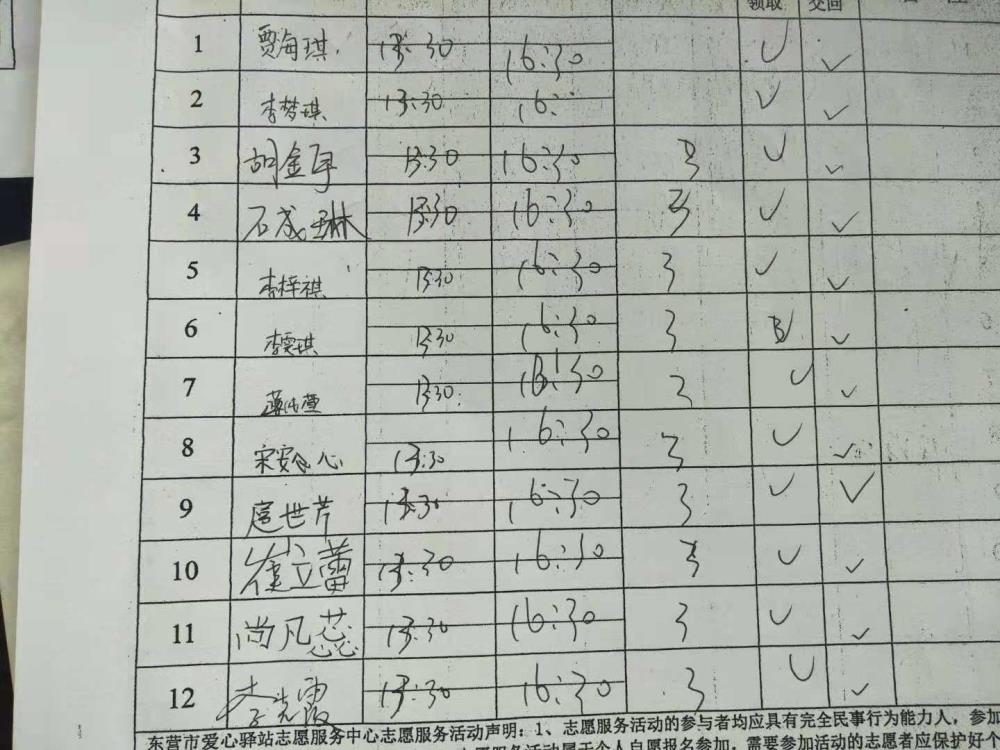 领取 交回
1 贾海琪 13:30 16:30 ✓ ✓
2 李梦琪 13:30 16: ✓ ✓
3 胡金 13:30 16:30 3 ✓ ✓
4 石成琳 13:30 16:30 3 ✓ ✓
5 李梓祺 13:30 16:30 3 ✓ ✓
6 李雯琪 13:30 16:30 3 ✓ ✓
7 13:30 16:30 3 ✓ ✓
8 宋安心 13:30 16:30 3 ✓ ✓
9 扈世芹 13:30 16:30 3 ✓ ✓
10 崔立蕾 13:30 16:30 3 ✓ ✓
11 尚凡蕊 13:30 16:30 3 ✓ ✓
12 李光霞 13:30 16:30 3 ✓ ✓
东营市爱心驿站志愿服务中心志愿服务活动声明：1、志愿服务活动的参与者均应具有完全民事行为能力人，参加
志愿服务活动属于个人自愿报名参加，需要参加活动的志愿者应保护好个